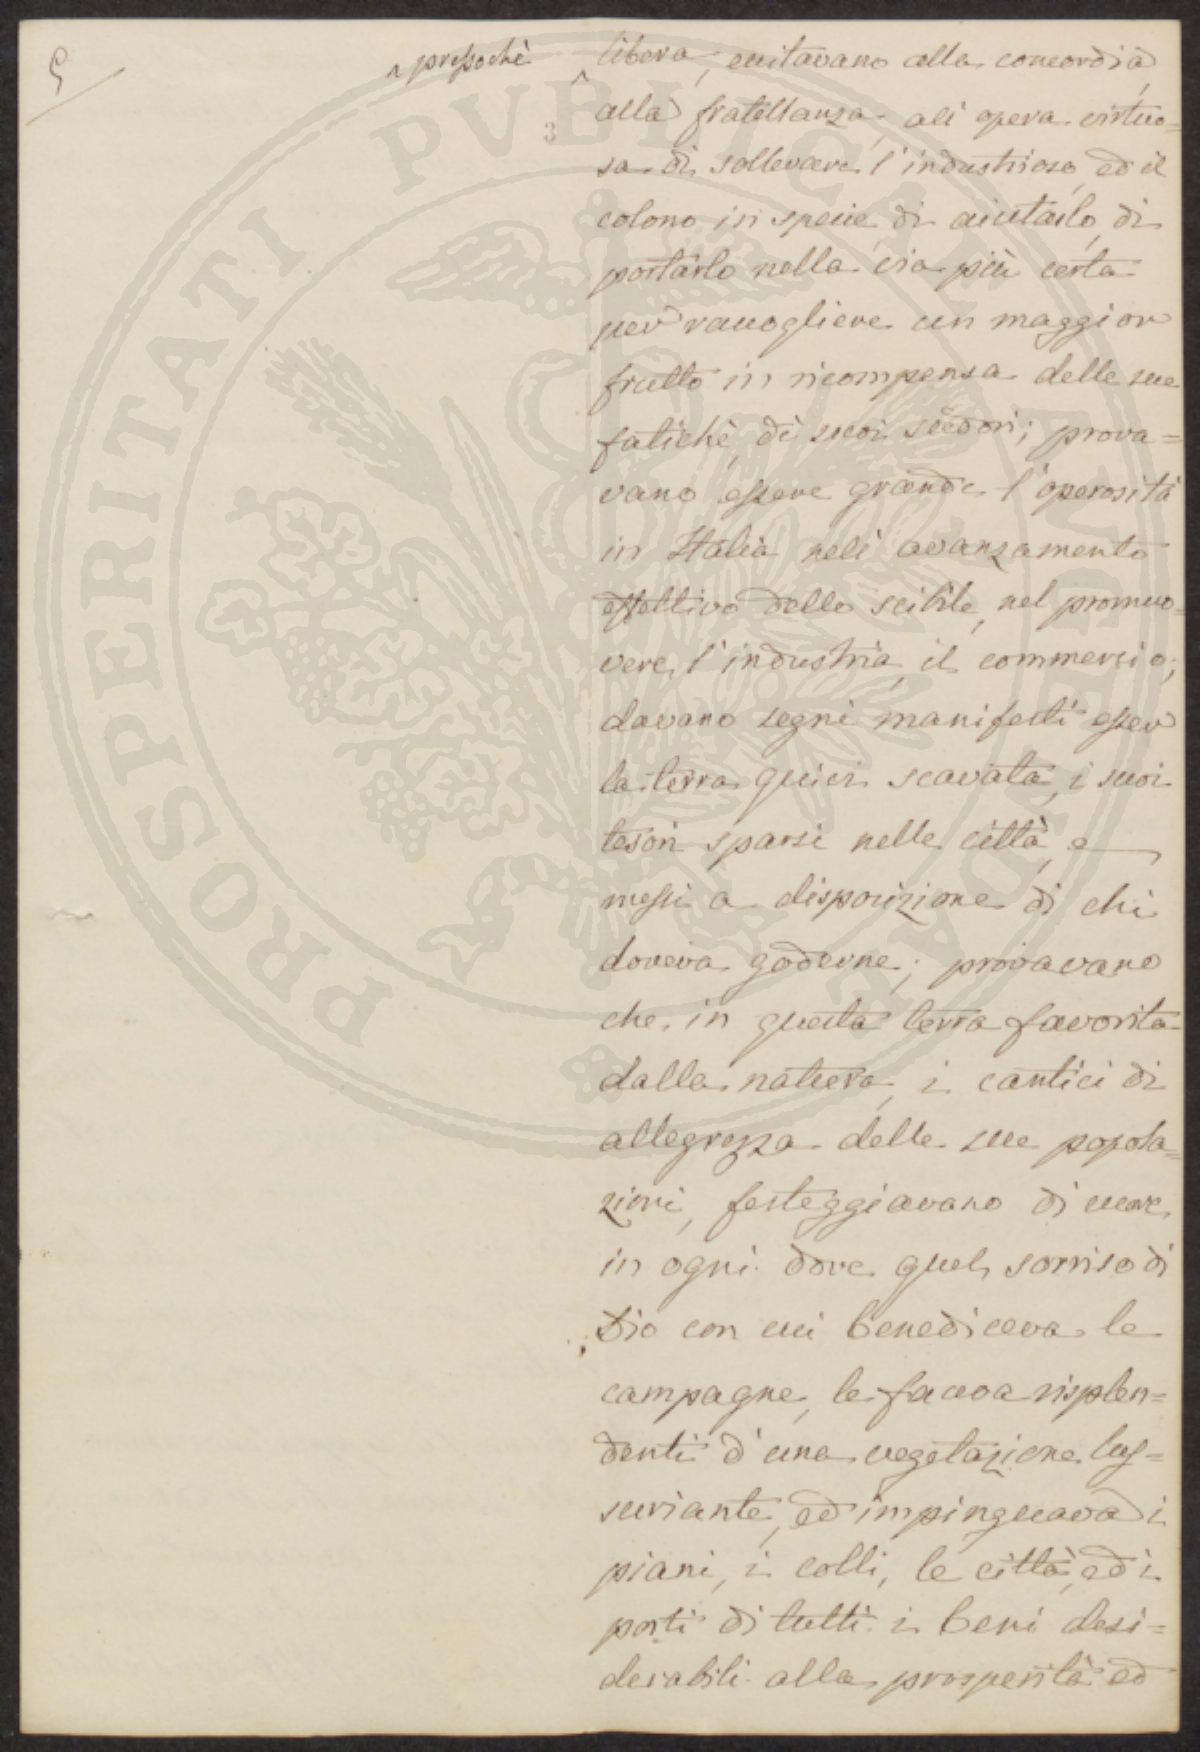 5
^ pressochè
^ libera, eccitavano alla concordia,
alla fratellanza, all' opera virtuo=
sa di sollevare l'industrioso, ed il
colono in specie, di aiutarlo, di
portarlo nella via più certa
per raccogliere un maggior
frutto in ricompensa delle sue
fatiche, de' suoi sudori; prova=
vano essere grande l'operosità
in Italia nell' avanzamento
effettivo dello scibile, nel promuo=
vere l'industria, il commerzio;
davano segni manifesti esser
la terra quivi scavata, i suoi
tesori sparsi nelle città, e
messi a disposizione di chi
doveva goderne; provavano
che in questa terra favorita
dalla natura, i cantici di
allegrezza delle sue popola=
zioni, festeggiavano di cuore
in ogni dove quel sorriso di
Dio con cui benediceva le
campagne, le faceva risplen=
denti d' una vegetazione lus=
suriante, ed impinguava i
piani, i colli, le città, ed i
porti di tutti i beni desi=
derabili alla prosperità ed
3
PROSPERITATI PVBLICAE AVGENDAE